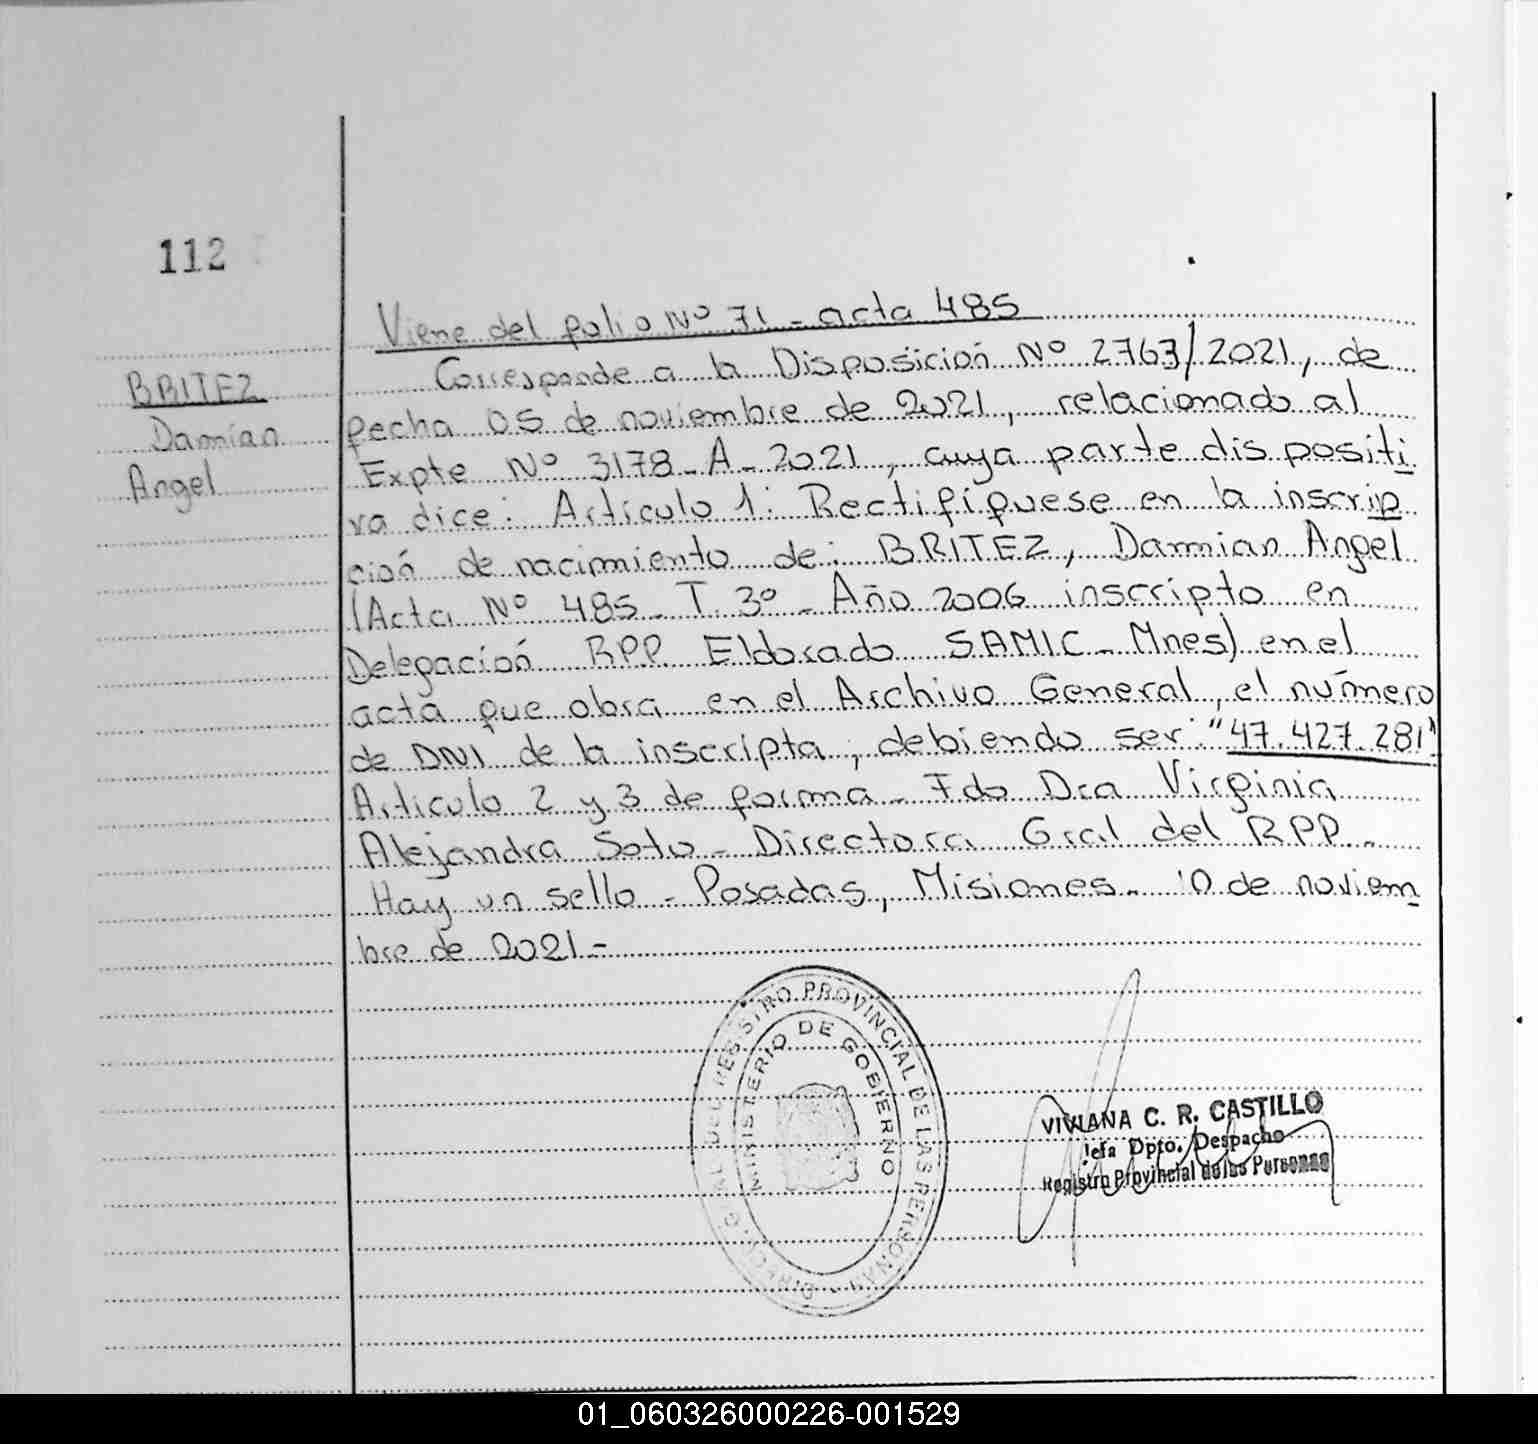 112
Viene del folio Nº 71 - acta 485
BRITEZ
Damian
Angel
Corresponde a la Disposición Nº 2763/2021, de
fecha 05 de noviembre de 2021, relacionado al
Expte Nº 3178-A-2021, cuya parte dispositi
va dice: Articulo 1: Rectifíquese en la inscrip
ción de nacimiento de: BRITEZ, Damian Angel
(Acta Nº 485 - T. 3º - Año 2006 inscripto en
Delegación RPP. Eldorado SAMIC - Mnes) en el
acta que obra en el Archivo General, el número
de DNI de la inscripta, debiendo ser: "47.427.281"
Articulo 2 y 3 de forma - Fdo Dra Virginia
Alejandra Soto - Directora Gral del RPP.-
Hay un sello - Posadas, Misiones - 10 de noviem
bre de 2021 -
REGISTRO PROVINCIAL DE LAS PERSONAS
MINISTERIO DE GOBIERNO
VIVIANA C. R. CASTILLO
Jefa Dpto. Despacho
Registro Provincial de las Personas
01_060326000226-001529